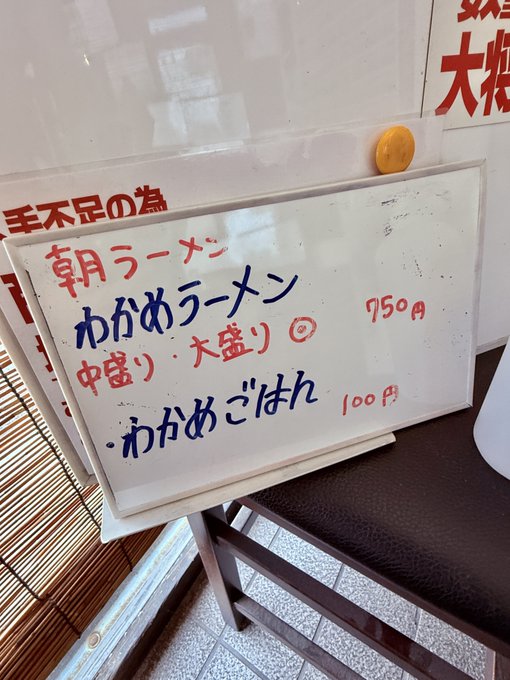 大
手不足の為
朝ラーメン
わかめラーメン
750円
中盛り・大盛り◎
・わかめごはん
100円